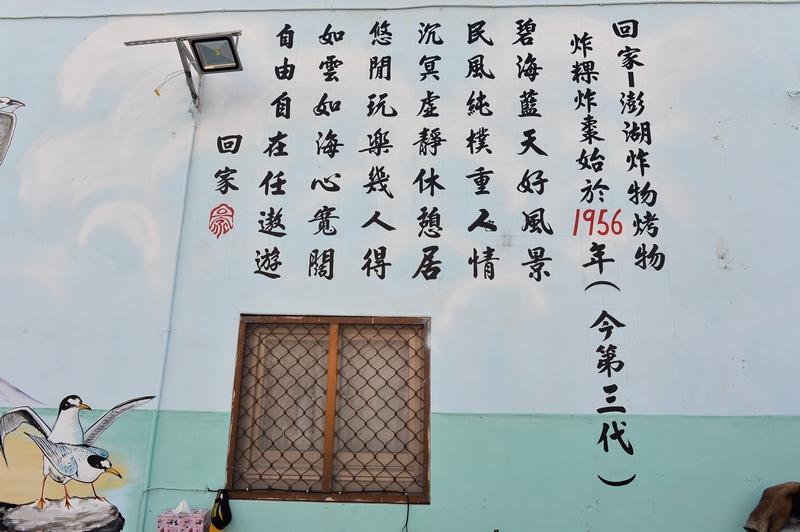 回家－澎湖炸物烤物
炸粿炸棗始於1956年(今第三代)
碧海藍天好風景
民風純樸重人情
沉冥虛靜休憩居
悠閒玩樂幾人得
如雲如海心寬闊
自由自在任遨遊
回家